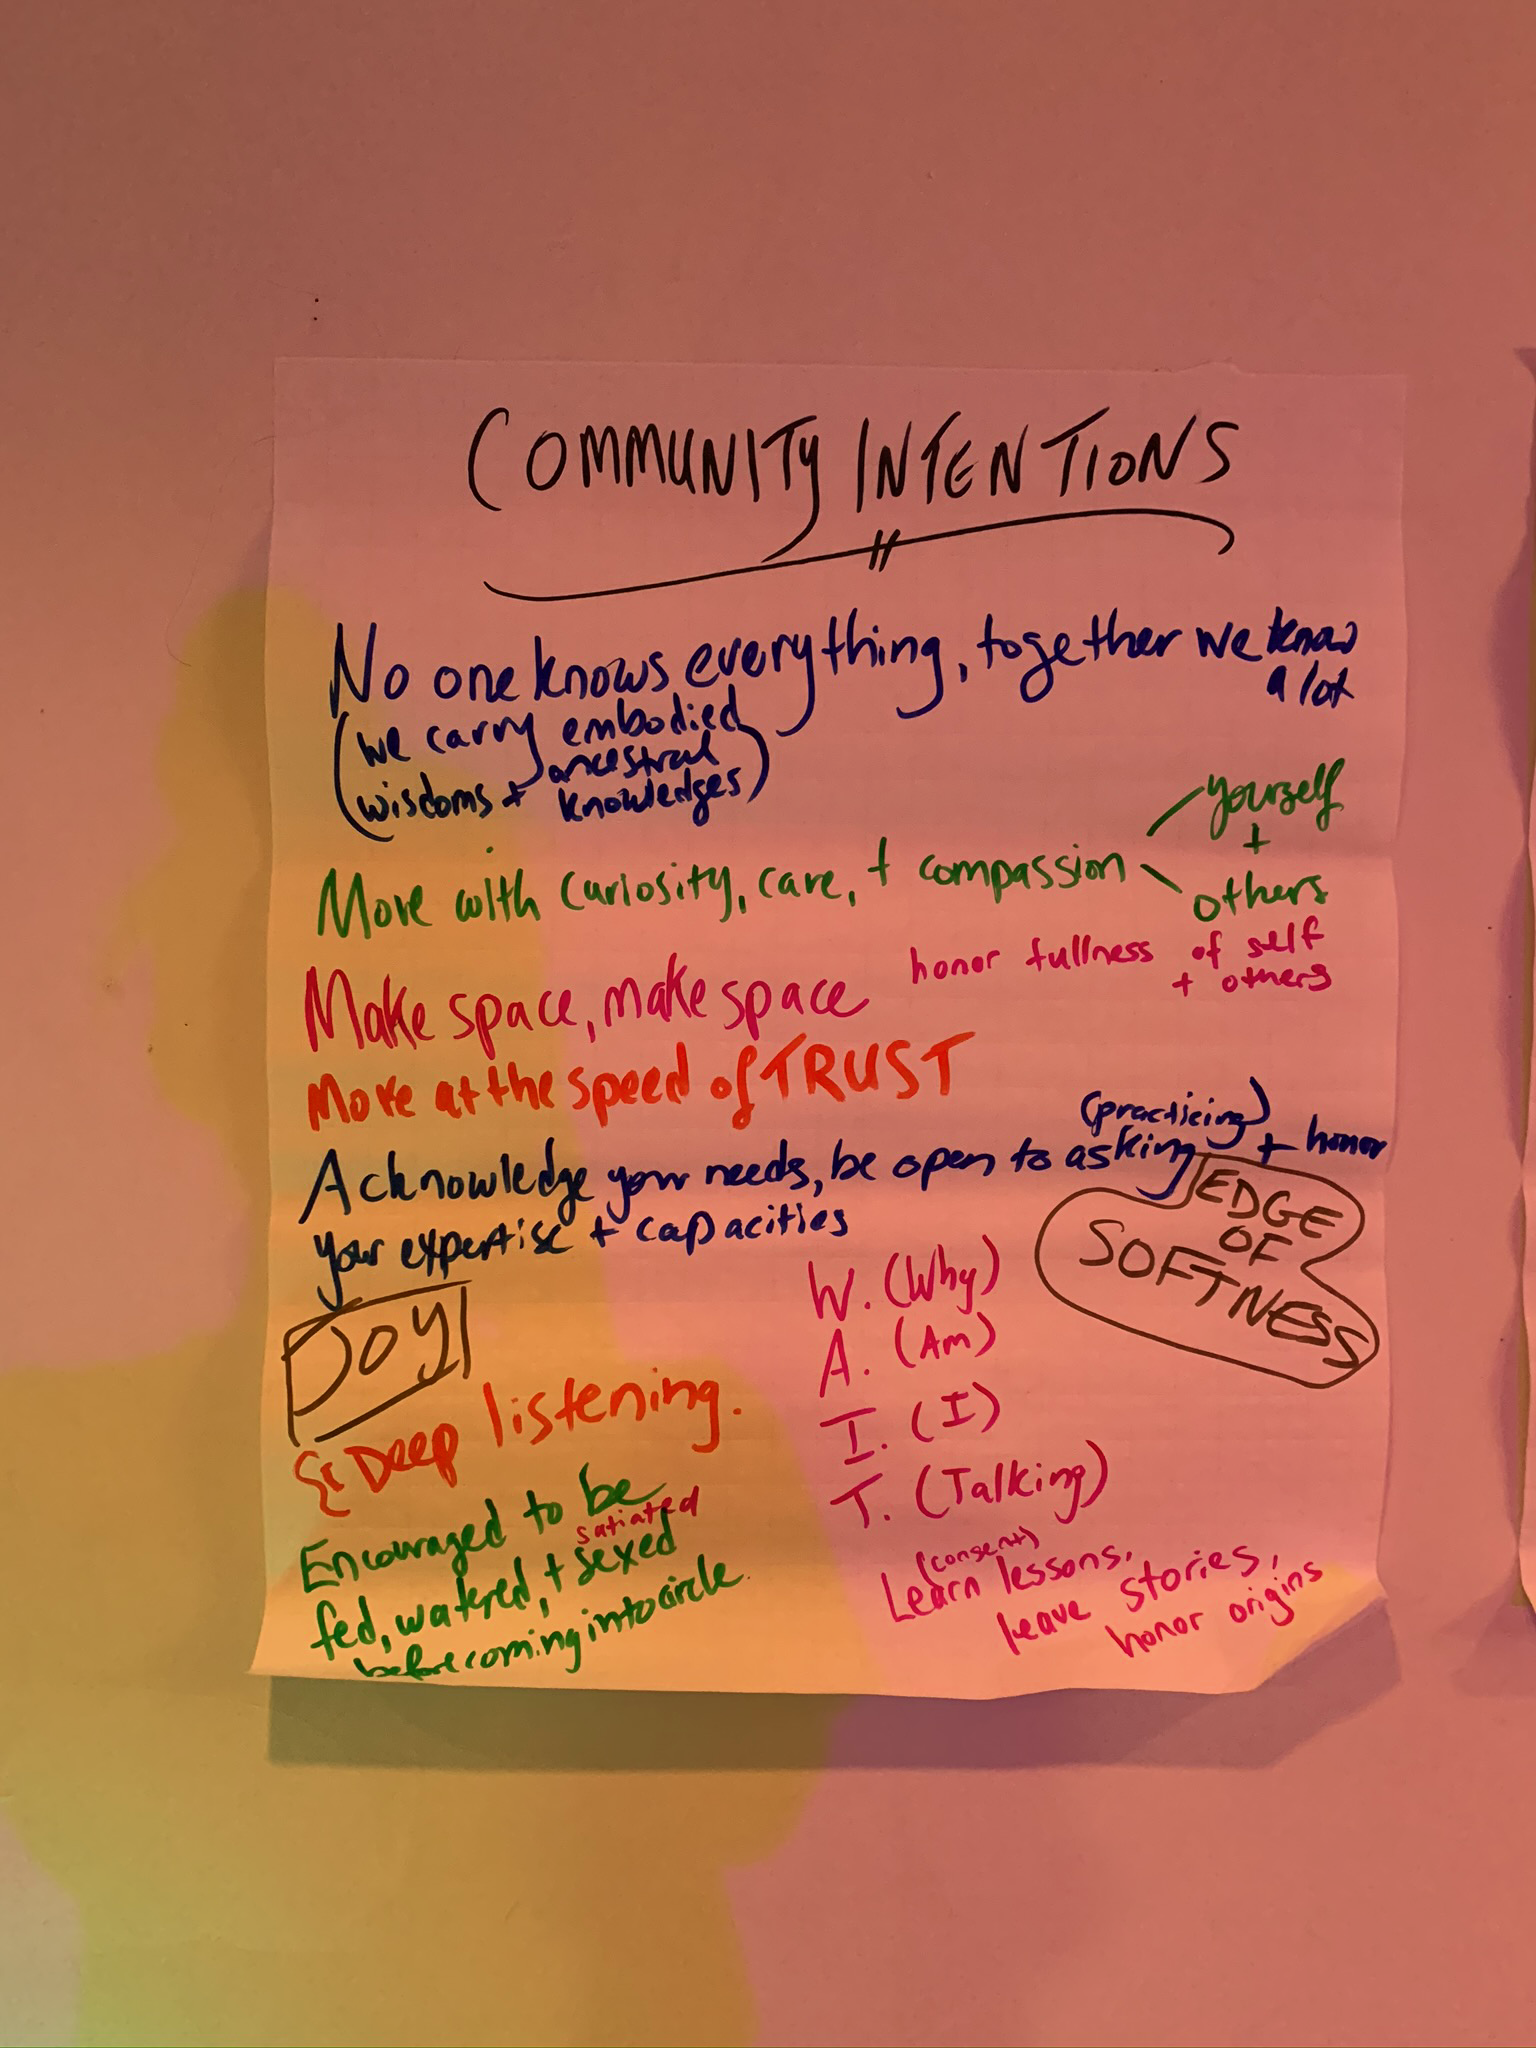 COMMUNITY INTENTIONS
No one knows everything, together we know
a lot
(we carry embodied
wisdoms + ancestral
knowledges)
Move with curiosity, care, + compassion
yourself
+
others
Make space, make space
honor fullness of self
+ others
Move at the speed of TRUST
(practicing)
Acknowledge your needs, be open to asking + honor
your expertise + capacities
EDGE
OF
SOFTNESS
JOY
W. (Why)
A. (Am)
I. (I)
T. (Talking)
Deep listening.
Encouraged to be
satiated
fed, watered, + sexed
before coming into circle.
(consent)
Learn lessons,
leave stories,
honor origins